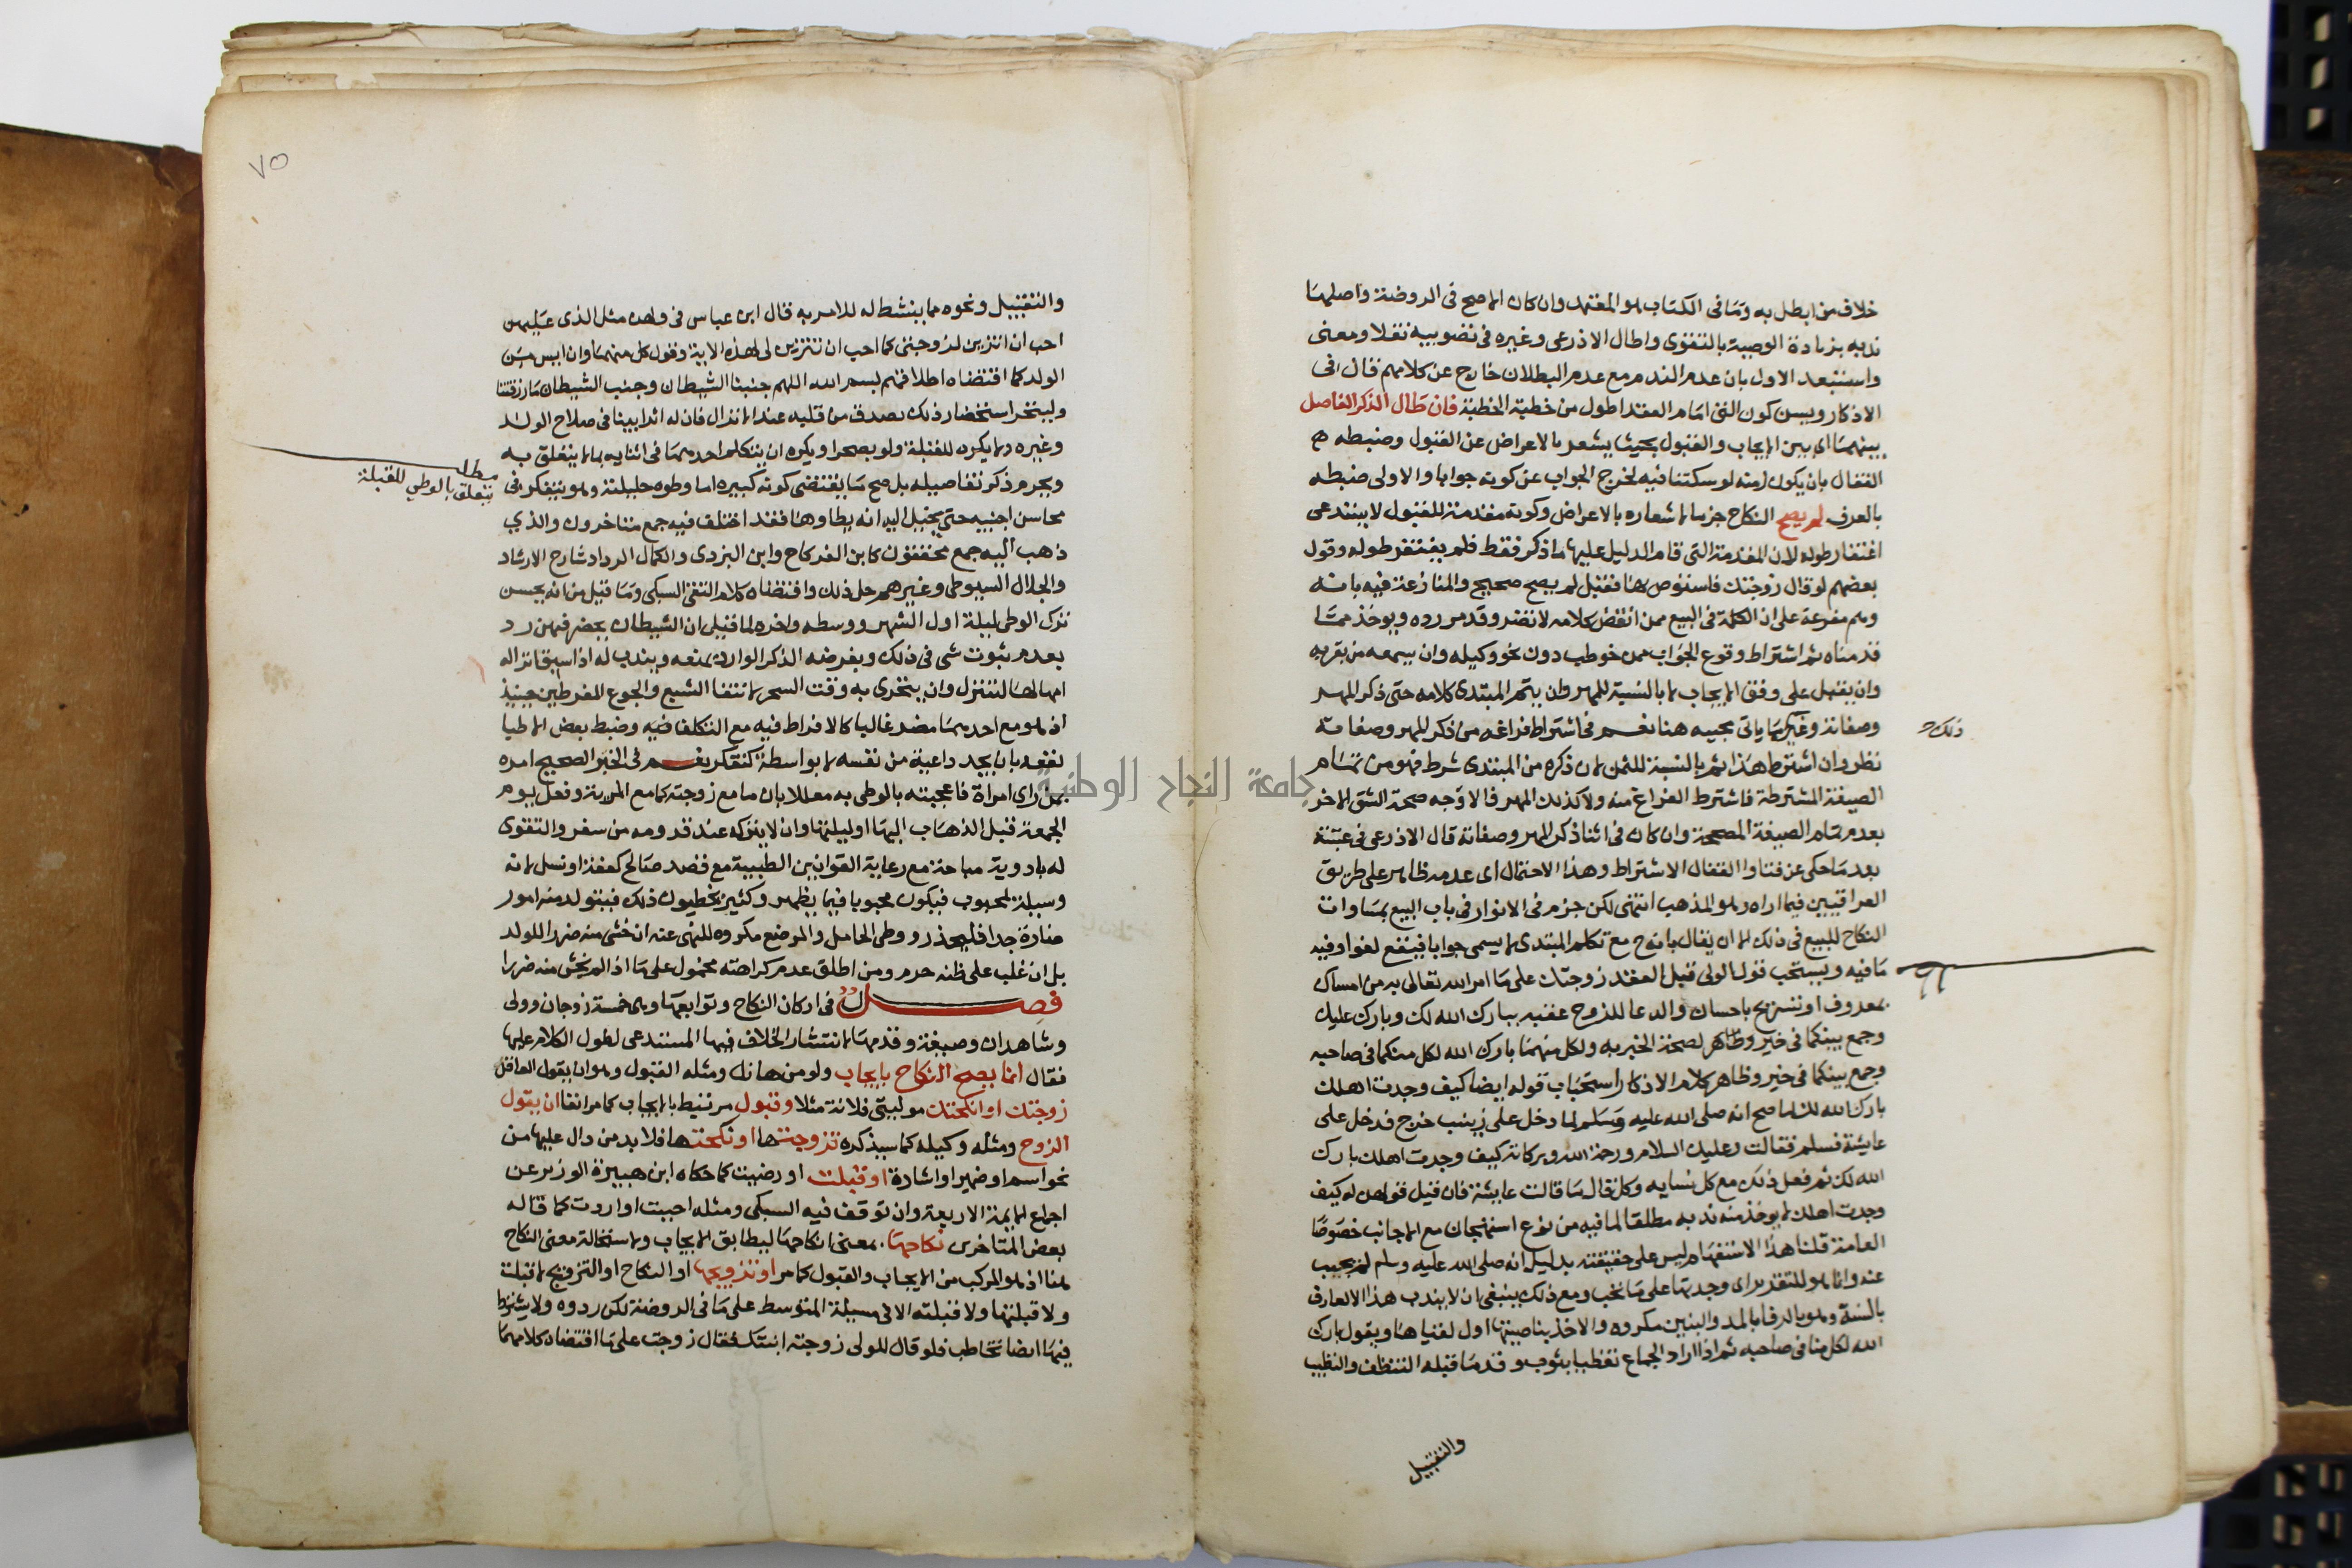 خلاف من ابطل به وما فى الكتاب هو المعتمد وان كان الاصح فى الروضة واصلها
ندبه بزيادة الوصية بالتقوى واطال الاذرعى وغيره فى تصويبه نقلا ومعنى
واستبعد الاول بان عدم الندم مع عدم البطلان خارج عن كلامهم قال فى
الاذكار ويسن كون التى امام العقد اطول من خطبة الخطبة فان طال الذكر الفاصل
بينهما اى بين الايجاب والقبول بحيث يشعر بالاعراض عن القبول وضبطه
القفال بان يكون زمنه لو سكتا فيه لخرج الجواب عن كونه جوابا والاولى ضبطه
بالعرف لم يصح النكاح جزما لاشعاره بالاعراض وكونه مقدمة للقبول لا يستدعى
اغتفار طوله لان المقدمة التى قام الدليل عليها ما ذكر فقط فلم يغتفر طوله وقول
بعضهم لو قال زوجتك فاستوص بها فقبل لم يصح صحيح والمنازعة فيه بانه
وهم مفرعة على ان الكلمة فى البيع ممن انقضى كلامه لا تضر وقد مر رده ويوخذ مما
قدمناه ثم اشتراط وقوع الجواب ممن خوطب دون نحو وكيله وان يسمعه من بقربه
وان يقبل على وفق الايجاب لا بالنسبة للمهر وان يتم المبتدى كلامه حتى ذكر المهر
وصفاته وغير مما ياتى بجيبه هنا نعم فى اشتراط فراغه من ذكر المهر وصفاته
ذلك ح
نظر وان اشترط هذا ثم بالنسبة للثمن لان ذكره من المبتدى شرط فهو من تمام
الصيغة المشترطة فاشترط الفراغ منه ولا كذلك المهر فالاوجه صحة الشق الاخر
بعد تمام الصيغة المصححة وان كان فى اثنا ذكر المهر وصفاته قال الاذرعى فى غنيته
بعد ما حكى عن فتاوا القفال الاشتراط وهذا الاحتمال اى عدمه ظاهر على طريق
العراقيين فيما اراه وهو المذهب انتهى لكن جزم فى الانوار فى باب البيع بمساوات
النكاح للبيع فى ذلك الا ان يقال بانه ح مع تكلم المبتدى لا يسمى جوابا فيقع لغوا وفيه
ما فيه ويستحب قول الولى قبل العقد زوجتك على ما امر الله تعالى به من امساك
بمعروف او تسريح باحسان والدعا للزوج عقبه ببارك الله لك وبارك عليك
وجمع بينكما فى خير وظاهر لصحة الخبر به ولكل منهما بارك الله لكل منكما فى صاحبه
وجمع بينكما فى خير وظاهر كلام الاذكار استحباب قوله ايضا كيف وجدت اهلك
بارك الله لك لما صح انه صلى الله عليه وسلم لما دخل على زينب خرج فدخل على
عايشة فسلم فقالت وعليك السلام ورحمة الله وبركاته كيف وجدت اهلك بارك
الله لك ثم فعل ذلك مع كل نسايه وكل قال ما قالت عايشة فان قيل قولهن له كيف
وجدت اهلك لا يوخذ منه ندبه مطلقا لما فيه من نوع استهجان مع الاجانب خصوصا
العامة قلنا هذا الاستفهام ليس على حقيقته بدليل انه صلى الله عليه وسلم لم يجيب
عنه وانما هو للتقدير اى وجدتها على ما تحب ومع ذلك ينبغى ان لا يندب هذا الا لعارف
بالسنة وهو بالرفا بالمد والبنين مكروه والاخذ بناصيتها اول لقياها ويقول بارك
الله لكل منا فى صاحبه ثم اذا اراد الجماع تغطيا بثوب وقدما قبله التنظف والتطيب
والتقبيل
٧٥
والتقبيل ونحوه مما ينشط له للامر به قال ابن عباس فى ولهن مثل الذى عليهن
احب ان اتزين لزوجتى كما احب ان تتزين لى لهذه الاية وقول كل منهما وان ايس من
الولد كما اقتضاه اطلاقهم بسم الله اللهم جنبنا الشيطان وجنب الشيطان ما رزقتنا
وليتحر استحضار ذلك بصدق من قلبه عند الانزال فان له اثرا بينا فى صلاح الولد
وغيره ولا يكره للقبلة ولو بصحرا ويكره ان يتكلم احدهما فى اثنايه بما لا يتعلق به
ويحرم ذكر تفاصيله بل صح ما يقتضى كونه كبيره اما وطوه حليلته وهو يتفكر فى
مطلـ
يتعلق بالوطي للقبلة
محاسن اجنبيه حتى يخيل اليه انه يطاوها فقد اختلف فيه جمع متاخرون والذي
ذهب اليه جمع محققون كابن الفركاح وابن البزدى والكمال الرداد شارح الارشاد
والجلال السيوطى وغيرهم حل ذلك واقتضاه كلام التقى السبكى وما قيل من انه يحسن
ترك الوطى ليلة اول الشهر ووسطه واخره لما قيل ان الشيطان يحضر فيهن رد
بعدم ثبوت شى فى ذلك وبفرضه الذكر الوارد يمنعه ويندب له اذا سبق انزاله
امهالها لتنزل وان يتحرى به وقت السحر لانتفا الشبع والجوع المفرطين حينيذ
اذ هو مع احدهما مضر غاليا كالافراط فيه مع التكلف فيه وضبط بعض الاطبا
نفعه بان يجد داعية من نفسه لا بواسطة كتفكر نعم فى الخبر الصحيح امره
بمن راى امراة فاعجبته بالوطى به معللا بان ما مع زوجته كما مع المرية وفعل يوم
الجمعة قبل الذهاب اليها او ليلتها وان لا يتركه عند قدومه من سفر والتقوى
له بادوية مباحة مع رعاية القوانين الطبية مع قصد صالح كعفة او نسل لانه
وسيلة لمحبوب فيكون محبوبا فيما يظهر وكثير يخطيون ذلك فيتولد منه امور
ضارة جدا فليحذر ووطى الحامل والمرضع مكروه للنهى عنه ان خشى منه ضررا للولد
بل ان غلب على ظنه حرم ومن اطلق عدم كراهته محمول على ما اذا لم يخش منه ضررا
فصــل فى اركان النكاح وتوابعها وهى خمسة زوجان وولى
وشاهدان وصيغة وقدمها لانتشار الخلاف فيها المستدعى لطول الكلام عليها
فقال انما يصح النكاح بايجاب ولو من هازل ومثله القبول وهو ان يقول العاقد
زوجتك او انكحتك موليتى فلانة مثلا وقبول مرتبط بالايجاب كما مر انفا ان يقول
الزوج ومثله وكيله كما سيذكره تزوجتها او نكحتها فلا بد من دال عليها من
نحو اسم او ضمير او اشارة او قبلت او رضيت كما حكاه ابن هبيرة الوزير عن
اجماع الايمة الاربعة وان توقف فيه السبكى ومثله احببت او اردت كما قاله
بعض المتاخرى نكاحها بمعنى انكاحها ليطابق الايجاب ولاستحالة معنى النكاح
هنا اذ هو المركب من الايجاب والقبول كما مر او تزويجها او النكاح او التزويج لا قبلت
ولا قبلتها ولا قبلته الا فى مسيلة المتوسط على ما فى الروضة لكن ردوه ولا يشترط
فيها ايضا تخاطب فلو قال للولى زوجته ابنتك فقال زوجت على ما اقتضاه كلامهما
جامعة النجاح الوطنية